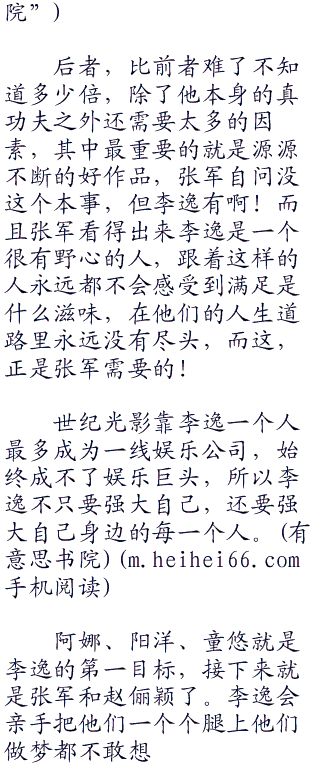 院”)
后者，比前者难了不知
道多少倍，除了他本身的真
功夫之外还需要太多的因
素，其中最重要的就是源源
不断的好作品，张军自问没
这个本事，但李逸有啊！而
且张军看得出来李逸是一个
很有野心的人，跟着这样的
人永远都不会感受到满足是
什么滋味，在他们的人生道
路里永远没有尽头，而这，
正是张军需要的！
世纪光影靠李逸一个人
最多成为一线娱乐公司，始
终成不了娱乐巨头，所以李
逸不只要强大自己，还要强
大自己身边的每一个人。(有
意思书院)(m.heihei66.com
手机阅读)
阿娜、阳洋、童悠就是
李逸的第一目标，接下来就
是张军和赵俪颖了。李逸会
亲手把他们一个个腿上他们
做梦都不敢想